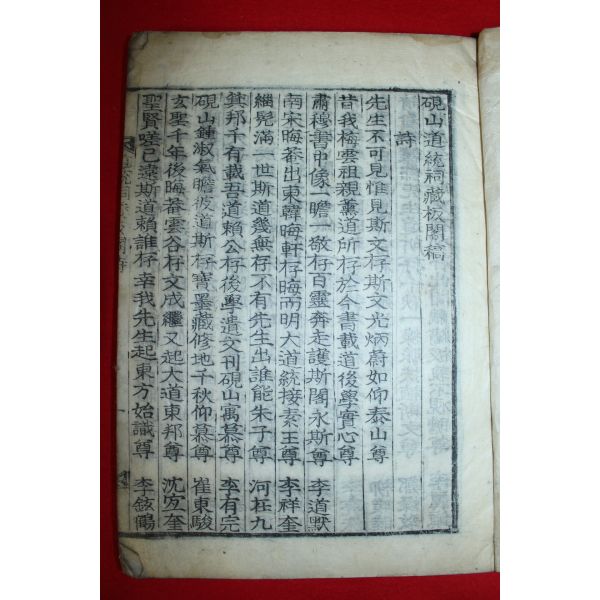 硯山道統祠藏板閣稿
詩
先生不可見惟見斯文存斯文光炳蔚如仰泰山尊
昔我梅雲祖親薰道所存於今書載道後學實心尊
肅穆書中像一瞻一敬存百靈奔走護斯閣永斯尊 李道默
南宋晦菴出東韓晦軒存晦而明大道統接素王尊 李祥奎
繼晃滿一世斯道幾無存不有先生出誰能朱子尊 河在九
箕邦千有載吾道賴公存後學遺文刊硯山寓慕尊 李有完
硯山鍾淑氣瞻彼道斯存寶墨藏修地千秋仰慕尊 崔東駿
玄聖千年後晦菴雲谷存文成繼又起大道東邦尊 沈宜奎
聖賢嗟已遠斯道賴誰存幸我先生起東方始識尊 李鉉鶴